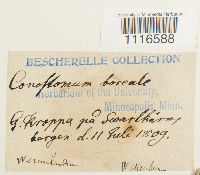 University of Minnesota Herbarium
1116588
BESCHERELLE COLLECTION
Conostomum boreale
Herbarium of the University,
Minneapolis, Minn.
G. Kroppa på Swartbärs,
bergen d. 11 Juli 1809.